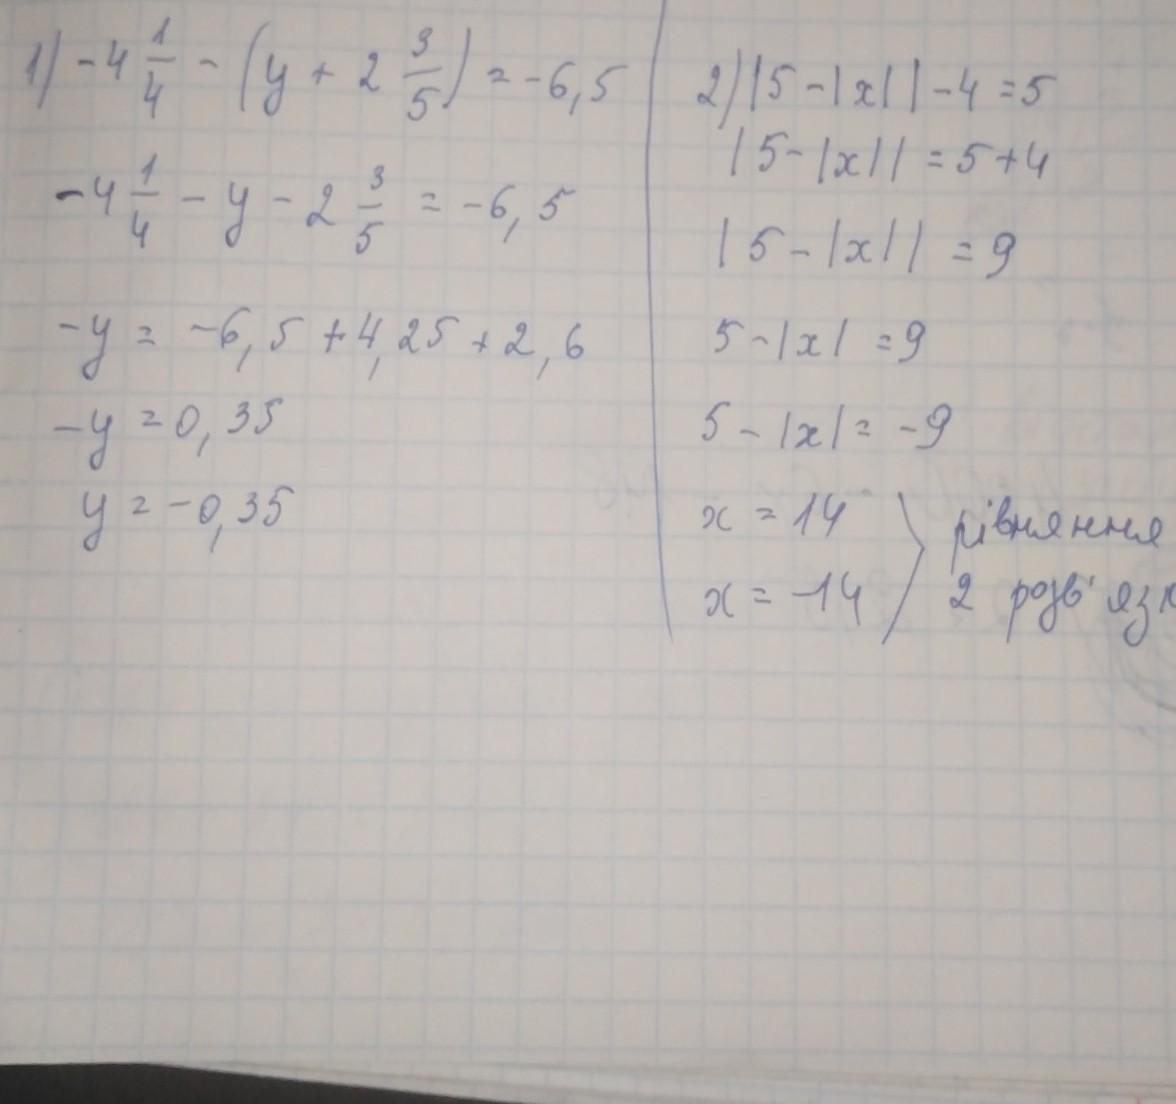 1) -4 1/4 - (y + 2 3/5) = -6,5
-4 1/4 - y - 2 3/5 = -6,5
-y = -6,5 + 4,25 + 2,6
-y = 0,35
y = -0,35
2) |5 - |x|| - 4 = 5
|5 - |x|| = 5 + 4
|5 - |x|| = 9
5 - |x| = 9
5 - |x| = -9
x = 14
x = -14
рівняння
2 розв'язк